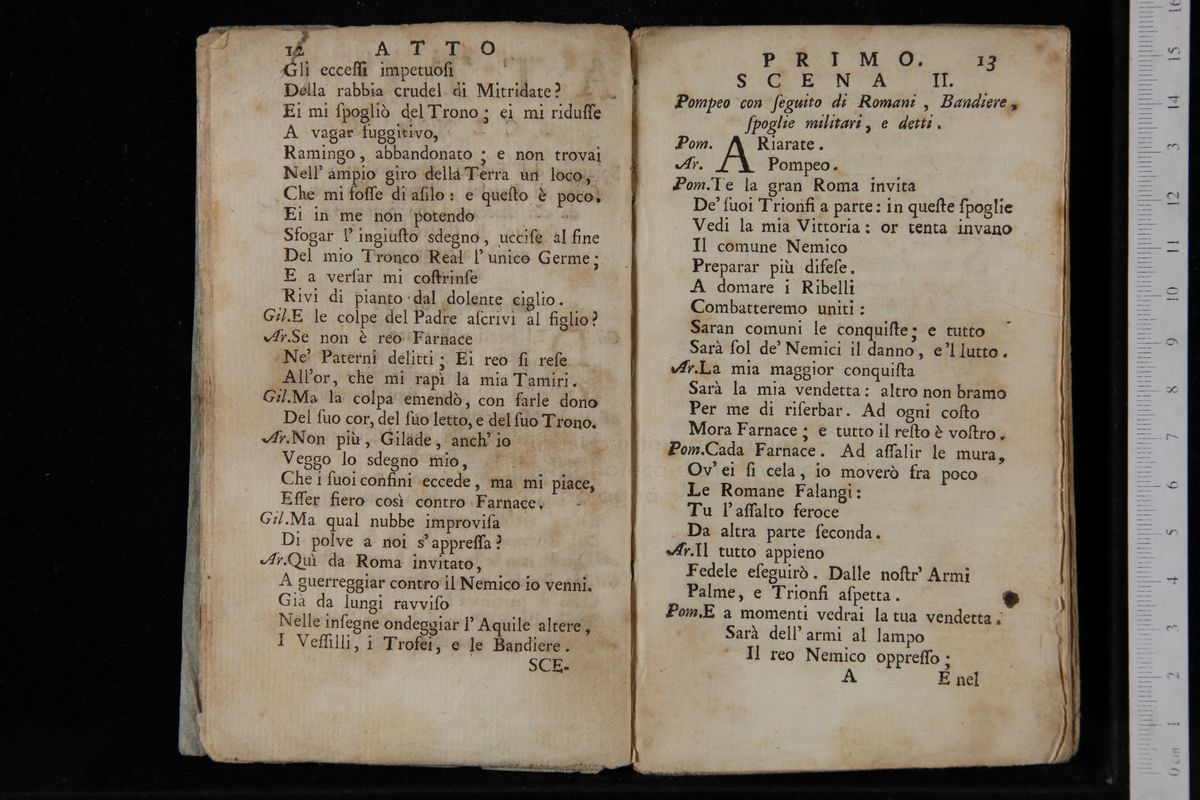 12 ATTO
Gli ecceſſi impetuoſi
Della rabbia crudel di Mitridate?
Ei mi ſpogliò del Trono; ei mi riduſſe
A vagar fuggitivo,
Ramingo, abbandonato; e non trovai
Nell' ampio giro della Terra un loco,
Che mi foſſe di aſilo: e queſto è poco.
Ei in me non potendo
Sfogar l' ingiuſto sdegno, ucciſe al fine
Del mio Tronco Real l' unico Germe;
E a verſar mi coſtrinſe
Rivi di pianto dal dolente ciglio.
Gil.E le colpe del Padre aſcrivi al figlio?
Ar.Se non è reo Farnace
Ne' Paterni delitti; Ei reo ſi reſe
All'or, che mi rapì la mia Tamiri.
Gil.Ma la colpa emendò, con farle dono
Del ſuo cor, del ſuo letto, e del ſuo Trono.
Ar.Non più, Gilade, anch' io
Veggo lo sdegno mio,
Che i ſuoi confini eccede, ma mi piace,
Eſſer fiero così contro Farnace.
Gil.Ma qual nubbe improviſa
Di polve a noi s' appreſſa?
Ar.Quì da Roma invitato,
A guerreggiar contro il Nemico io venni.
Già da lungi ravviſo
Nelle inſegne ondeggiar l' Aquile altere,
I Veſſilli, i Trofei, e le Bandiere.
SCE-
PRIMO. 13
SCENA II.
Pompeo con ſeguito di Romani, Bandiere,
ſpoglie militari, e detti.
Pom. ARiarate.
Ar. Pompeo.
Pom.Te la gran Roma invita
De' ſuoi Trionfi a parte: in queſte ſpoglie
Vedi la mia Vittoria: or tenta invano
Il comune Nemico
Preparar più difeſe.
A domare i Ribelli
Combatteremo uniti:
Saran comuni le conquiſte; e tutto
Sarà ſol de' Nemici il danno, e 'l lutto.
Ar.La mia maggior conquiſta
Sarà la mia vendetta: altro non bramo
Per me di riſerbar. Ad ogni coſto
Mora Farnace; e tutto il reſto è voſtro.
Pom.Cada Farnace. Ad aſſalir le mura,
Ov' ei ſi cela, io moverò fra poco
Le Romane Falangi:
Tu l' aſſalto feroce
Da altra parte ſeconda.
Ar.Il tutto appieno
Fedele eſeguirò. Dalle noſtr' Armi
Palme, e Trionfi aſpetta.
Pom.E a momenti vedrai la tua vendetta.
Sarà dell' armi al lampo
Il reo Nemico oppreſſo;
A E nel